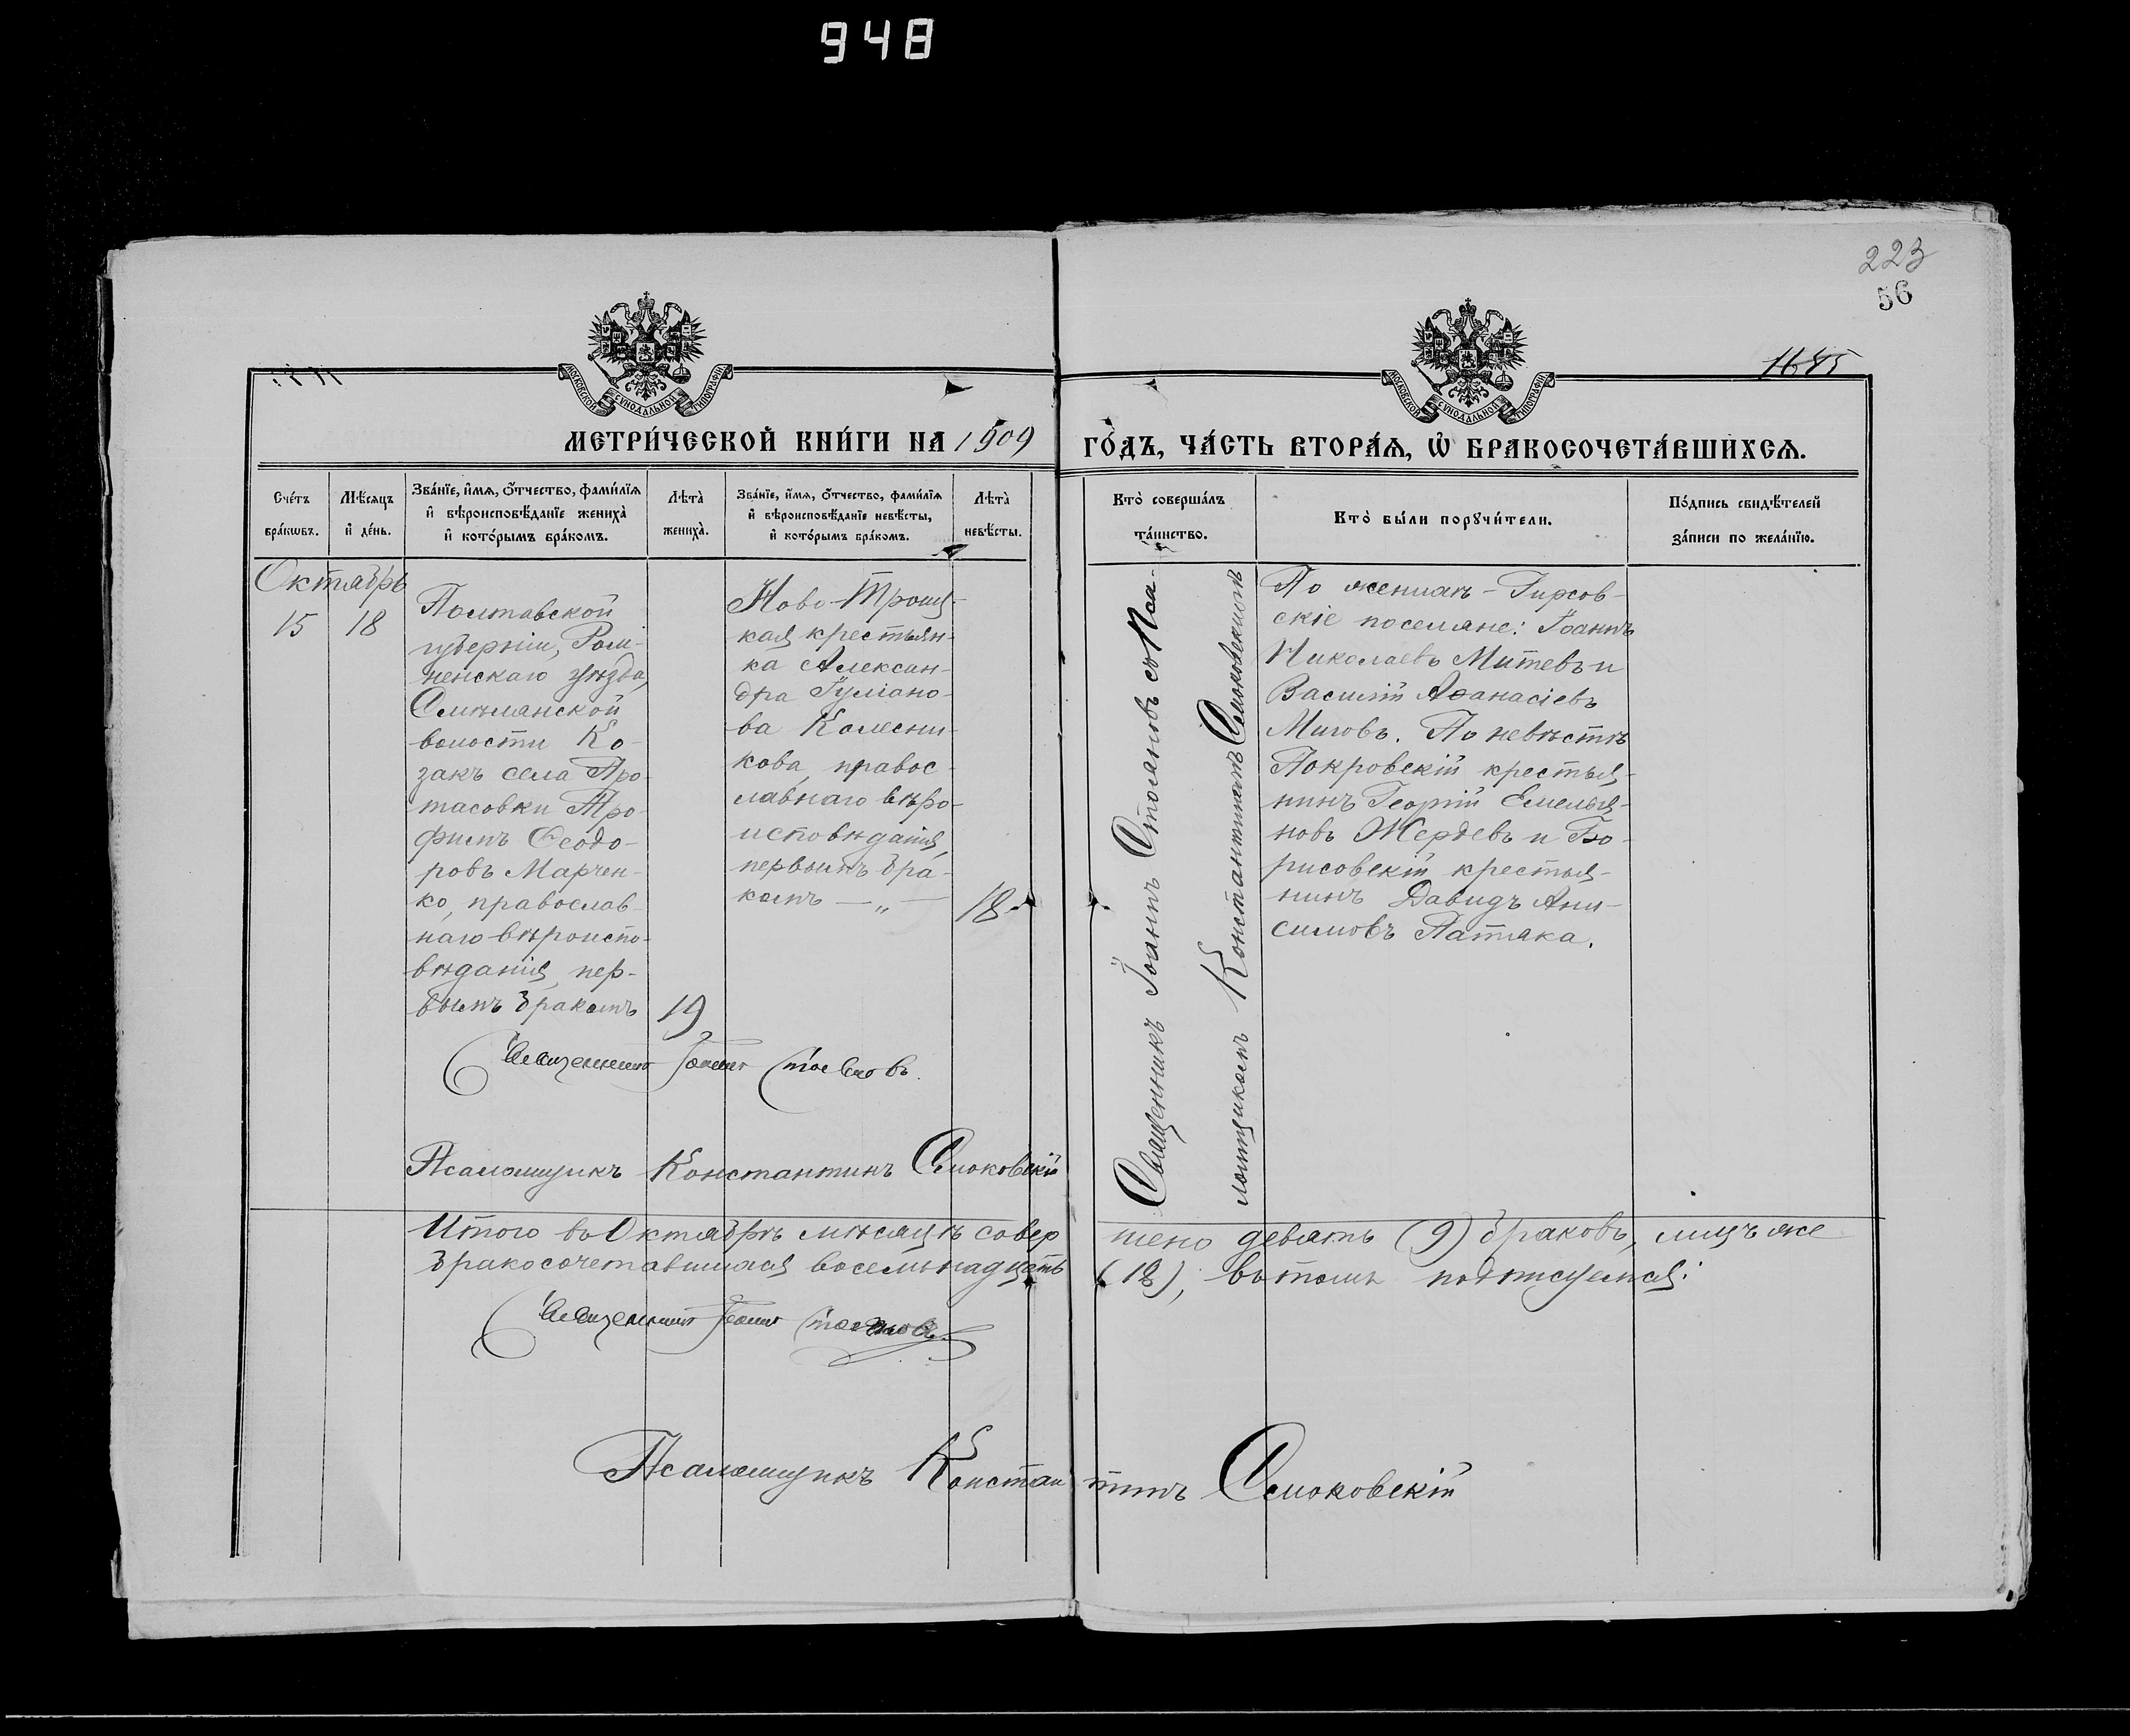 948
223
56
1645
МОСКОВСКОЙ СУНОДАЛЬНОЙ ТИПОГРАФІИ
МОСКОВСКОЙ СУНОДАЛЬНОЙ ТИПОГРАФІИ
МЕТРИ́ЧЕСКОЙ КНИ́ГИ НА 1909 ГО́ДЪ, ЧА́СТЬ ВТОРА́Ѧ, Ѽ БРАКОСОЧЕТА́ВШИХСѦ.
Сче́тъ
бра́кѡвъ.
Мѣ́сяцъ
и҆ де́нь.
Зва́нїе, и҆́мѧ, о҆́тчество, фами́лїѧ
и҆ вѣроисповѣ́данїе жениха̀
и҆ кото́рымъ бра́комъ.
Лѣта̀
жениха̀.
Зва́нїе, и҆́мѧ, о҆́тчество, фами́лїѧ
и҆ вѣроисповѣ́данїе невѣ́сты,
и҆ кото́рымъ бра́комъ.
Лѣта̀
невѣ́сты.
Кто̀ соверша́лъ
та́инство.
Кто̀ бы́ли порꙋчи́тели.
По́дпись свидѣ́телей
за́писи по жела́нїю.
Октябрь
15
18
Полтавской
губерніи, Ром-
ненскаго уѣзда,
Смѣлянской
волости Ко-
закъ села Про-
тасовки Тро-
фимъ Ѳеодо-
ровъ Марчен-
ко, православ-
наго вѣроиспо-
вѣданія, пер-
вымъ бракомъ
19
Ново-Троиц-
кая крестьян-
ка Алексан-
дра Іуліано-
ва Колесни-
кова, правос-
лавнаго вѣро-
исповѣданія,
первымъ бра-
комъ — „ —
18
Священникъ Іоаннъ Стояновъ съ Пса-
ломщикомъ Константиномъ Семоковскимъ
По женихѣ – Гирсов-
скіе поселяне: Іоаннъ
Николаевъ Митевъ и
Василій Аѳанасіевъ
Миговъ. По невѣстѣ
Покровскій крестья-
нинъ Георгій Емелья-
новъ Жердевъ и Бо-
рисовскій крестья-
нинъ Давидъ Ани-
симовъ Патяка.
Священникъ Іоаннъ Стояновъ
Псаломщикъ Константинъ Семоковскій
Итого въ Октябрѣ мѣсяцѣ совершено девять (9) браковъ, лицъ же
бракосочетавшихся восемьнадцать (18), въ томъ подписуемся:
Священникъ Іоаннъ Стояновъ
Псаломщикъ Константинъ Семоковскій